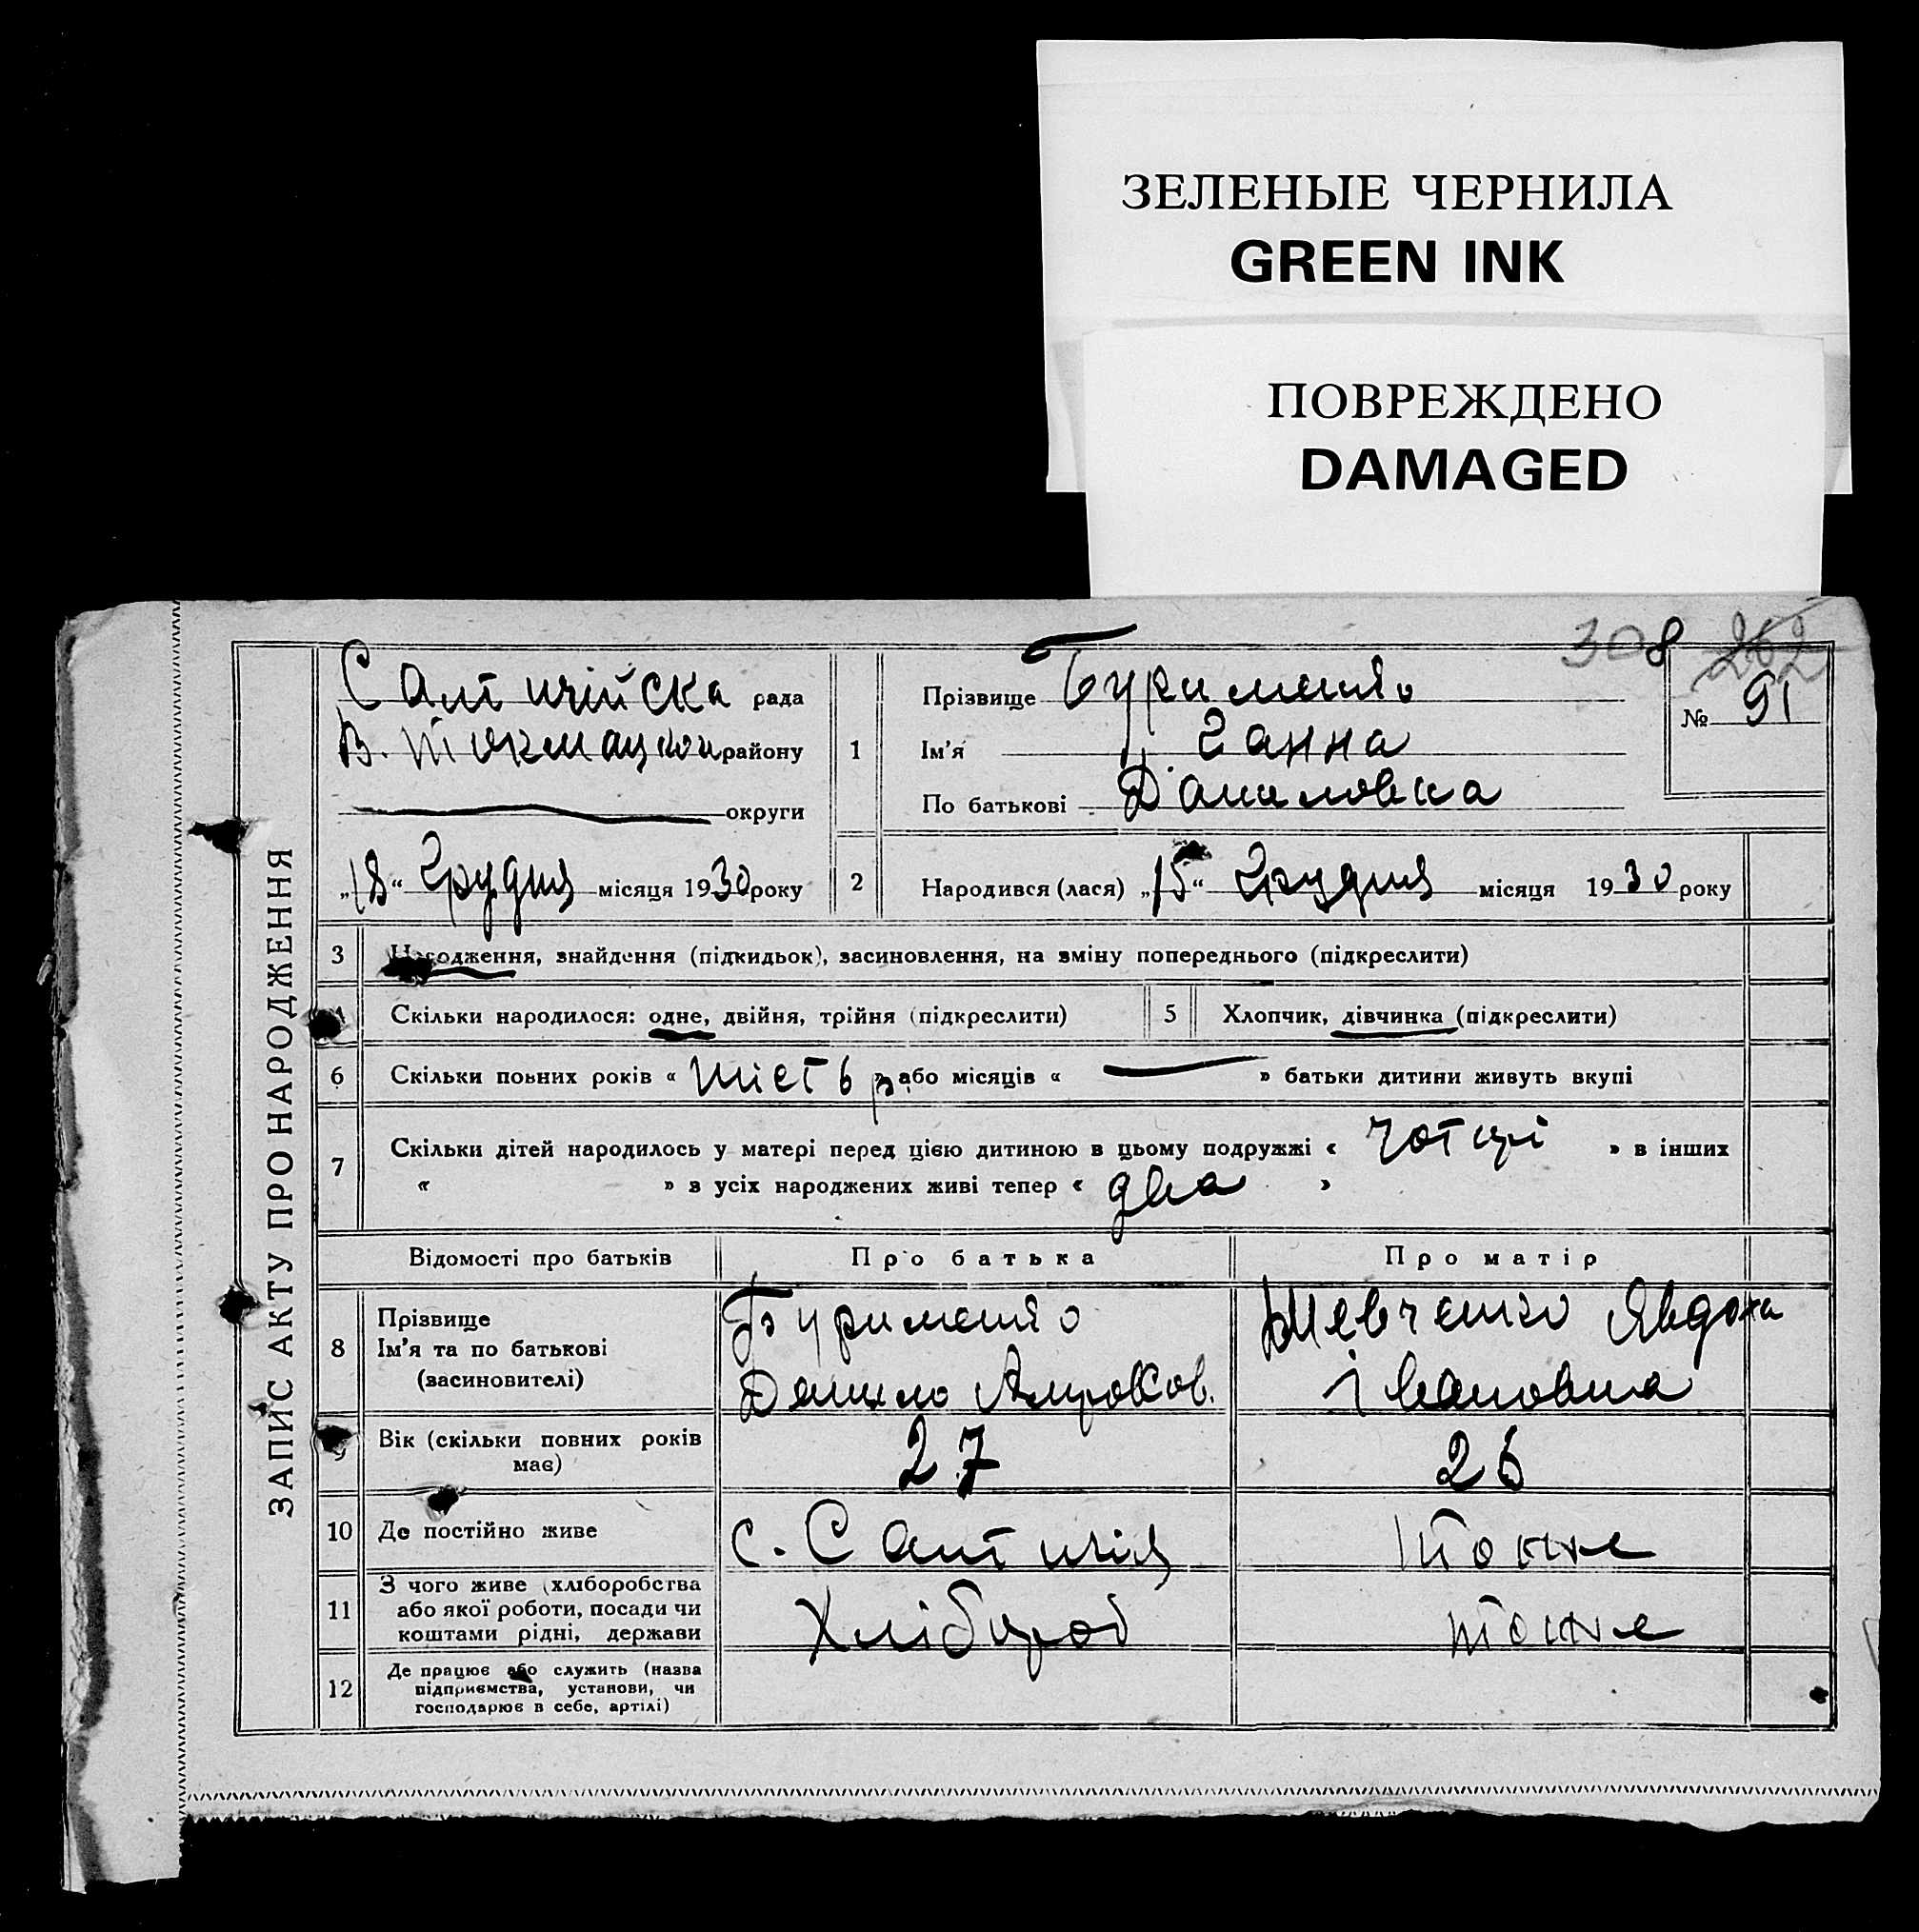 ЗЕЛЕНЫЕ ЧЕРНИЛА
GREEN INK
ПОВРЕЖДЕНО
DAMAGED
308 262
ЗАПИС АКТУ ПРО НАРОДЖЕННЯ
Салтичійска рада
В. Токмацкого району
округи
„18“ Грудня місяця 1930 року
1
Прізвище Бурименко
Ім'я Ганна
По батькові Даниловна
№ 91
2 Народився (лася) „15“ Грудня місяця 1930 року
3 Народження, знайдення (підкидьок), засиновлення, на зміну попереднього (підкреслити)
4 Скільки народилося: одне, двійня, трійня (підкреслити)
5 Хлопчик, дівчинка (підкреслити)
6 Скільки повних років « шість р. » або місяців « — » батьки дитини живуть вкупі
7 Скільки дітей народилось у матері перед цією дитиною в цьому подружжі « чотирі » в інших
« » з усіх народжених живі тепер « два »
Відомості про батьків Про батька Про матір
8 Прізвище Бурименко Шевченко Явдоха
Ім'я та по батькові
(засиновителі) Данило Івановна
9 Вік (скільки повних років має) 27 26
10 Де постійно живе с. Салтичія тоже
11 З чого живе (хліборобства
або якої роботи, посади чи
коштами рідні, держави Хлібороб тоже
12 Де працює або служить (назва
підприємства, установи, чи
господарює в себе, артілі)